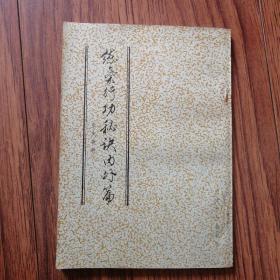 练气行功秘诀内外篇